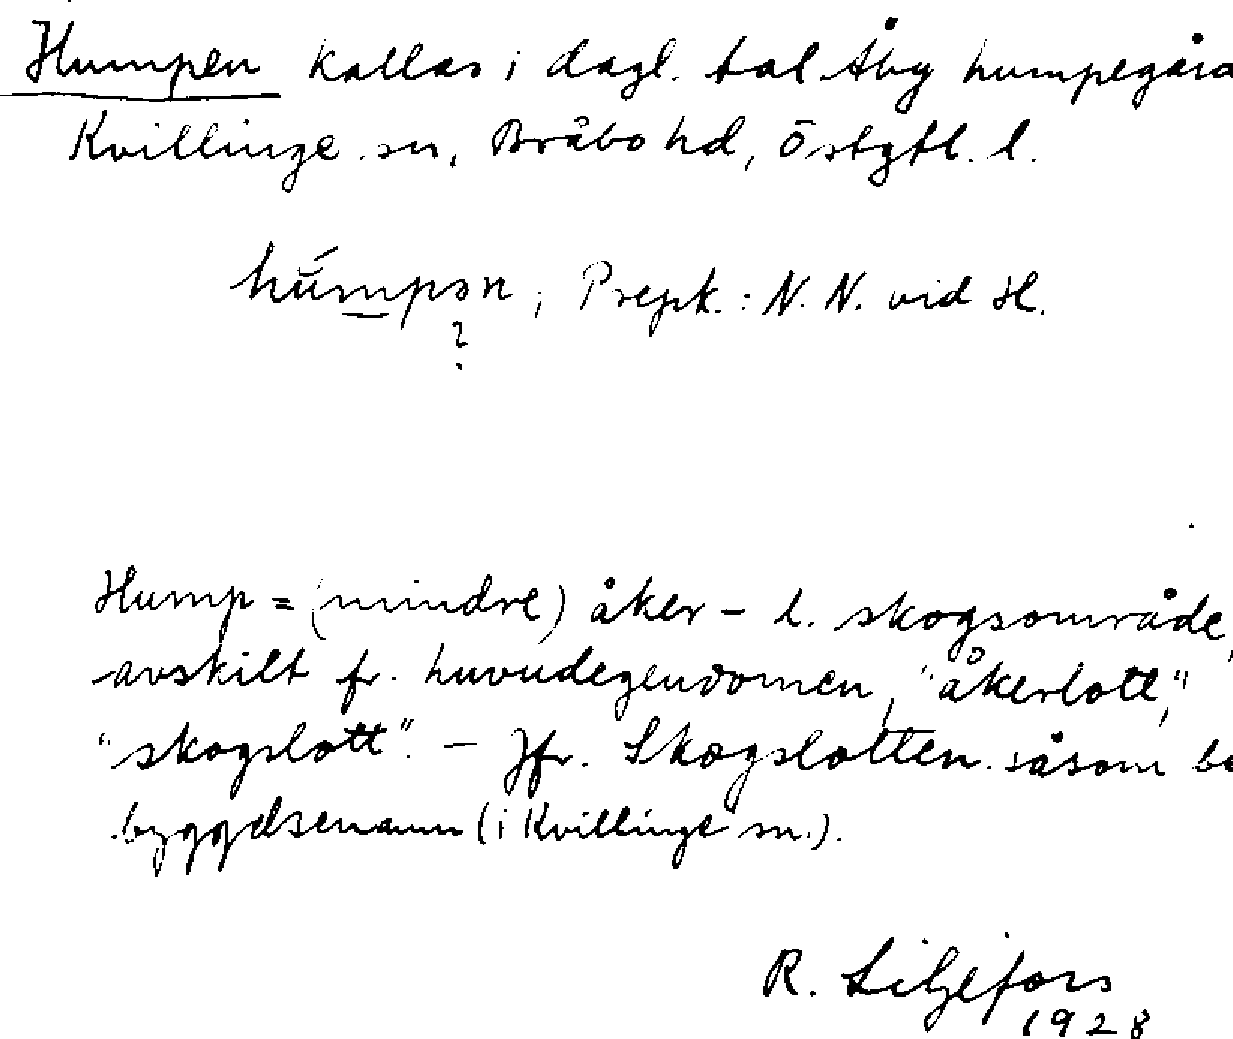 Humpen kallas i dagl. tal Åby humpegård
Kvillinge sn, Bråbo hd, Östgtl. l.
húmpən, Prepk.: N. N. vid H.
?
Hump = (mindre) åker- l. skogsområde,
avskilt fr. huvudegendomen, "åkerlott,"
"skogslott". - Jfr. Skogslotten såsom be
byggelsenamn (i Kvillinge sn.).
R. Liljefors
1928